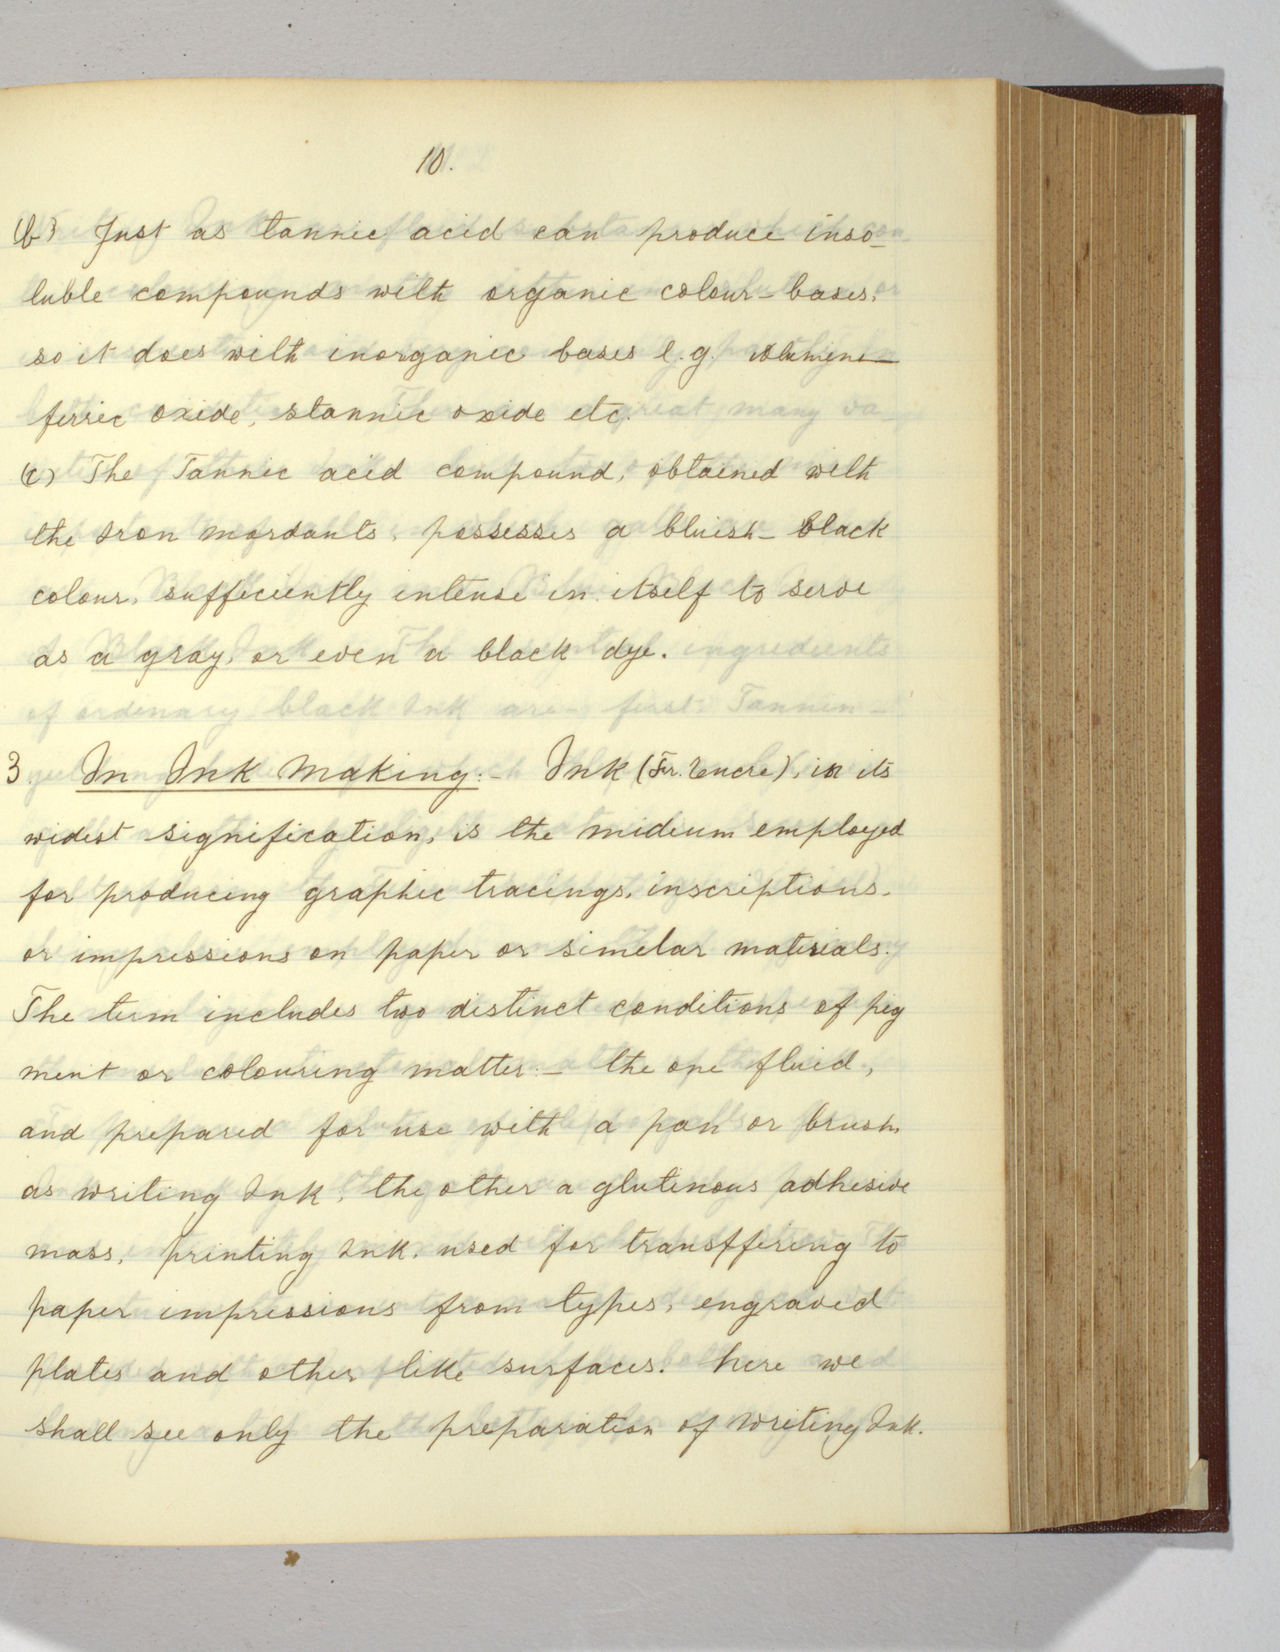 10.
(b) Just as tannic acid can produce inso-
luble compounds with organic colour-bases,
so it does with inorganic bases e.g.
ferric oxide, stannic oxide etc.
(c) The Tannic acid compound, obtained with
the Iron mordants, possesses a bluish-black
colour, sufficiently intense in itself to serve
as a gray, or even a black dye.
3 In Ink Making:- Ink (Fr. Encre), in its
widest signification, is the midium employed
for producing graphic tracings, inscriptions,
or impressions on paper or similar materials.
The term includes two distinct conditions of pig
ment or colouring matter:- the one fluid,
and prepared for use with a pan or brush,
as writing Ink, the other a glutinous adhesive
mass, printing Ink, used for transffering to
paper impressions from types, engraved
plates and other like surfaces. here we
shall see only the preparation of writing Ink.